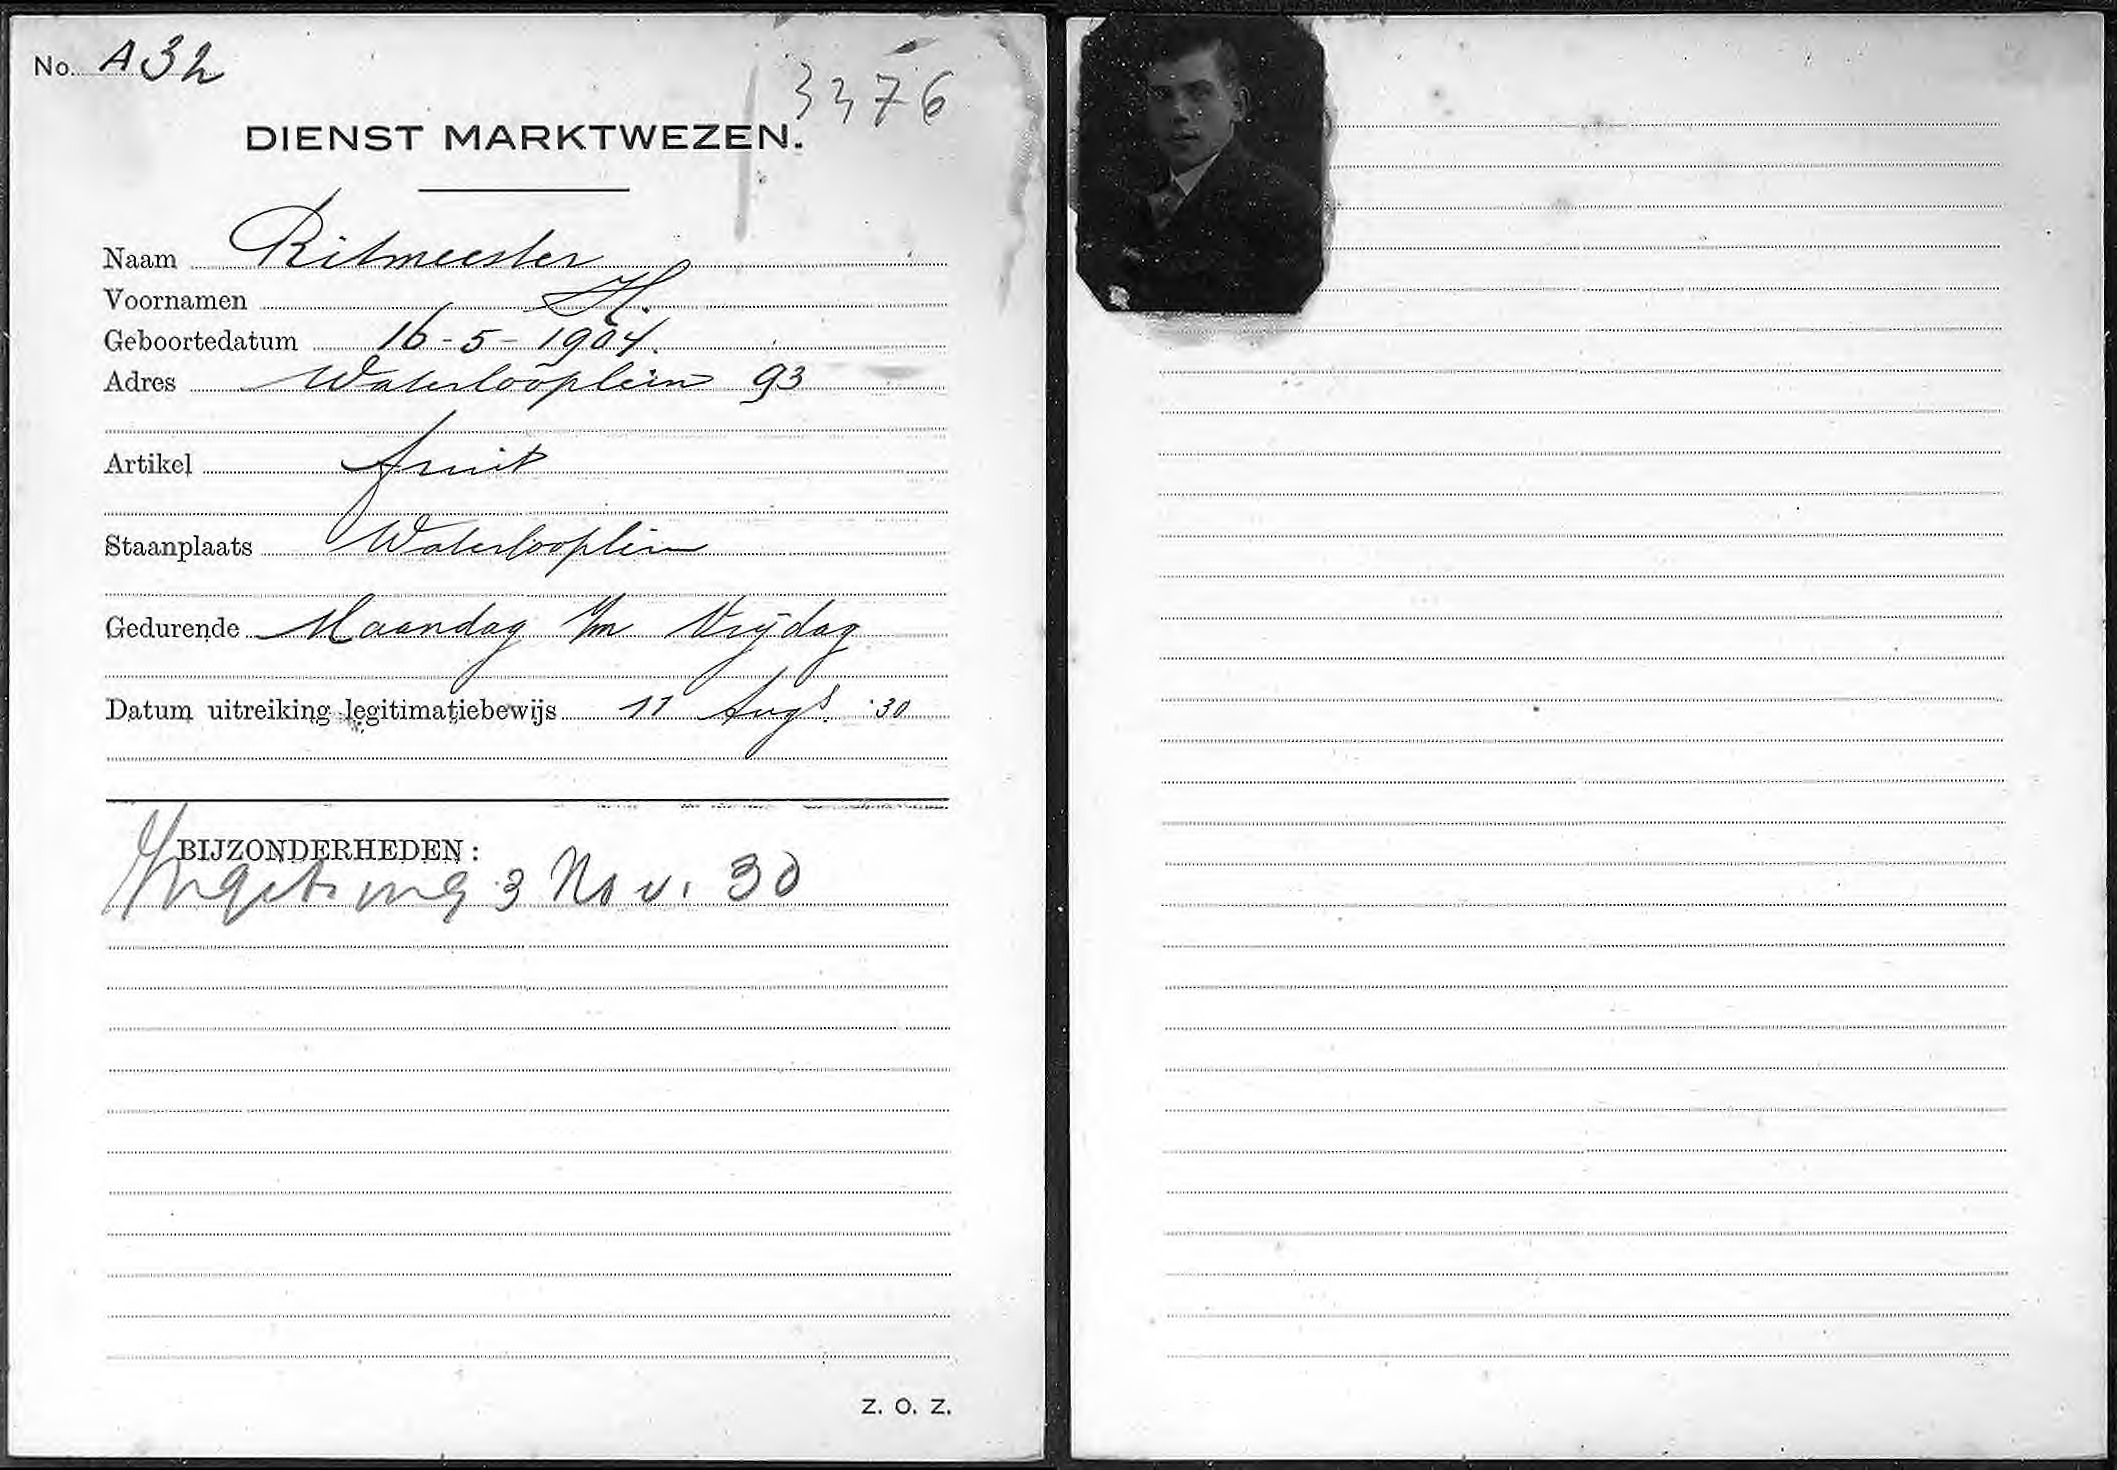 No. A 32
3376
DIENST MARKTWEZEN.
Naam Ritmeester
Voornamen H.
Geboortedatum 16-5-1904.
Adres Waterlooplein 93
Artikel fruit
Staanplaats Waterlooplein
Gedurende Maandag t/m Vrijdag
Datum uitreiking legitimatiebewijs 11 Augs. '30
BIJZONDERHEDEN:
3 Nov. 30
Z. O. Z.